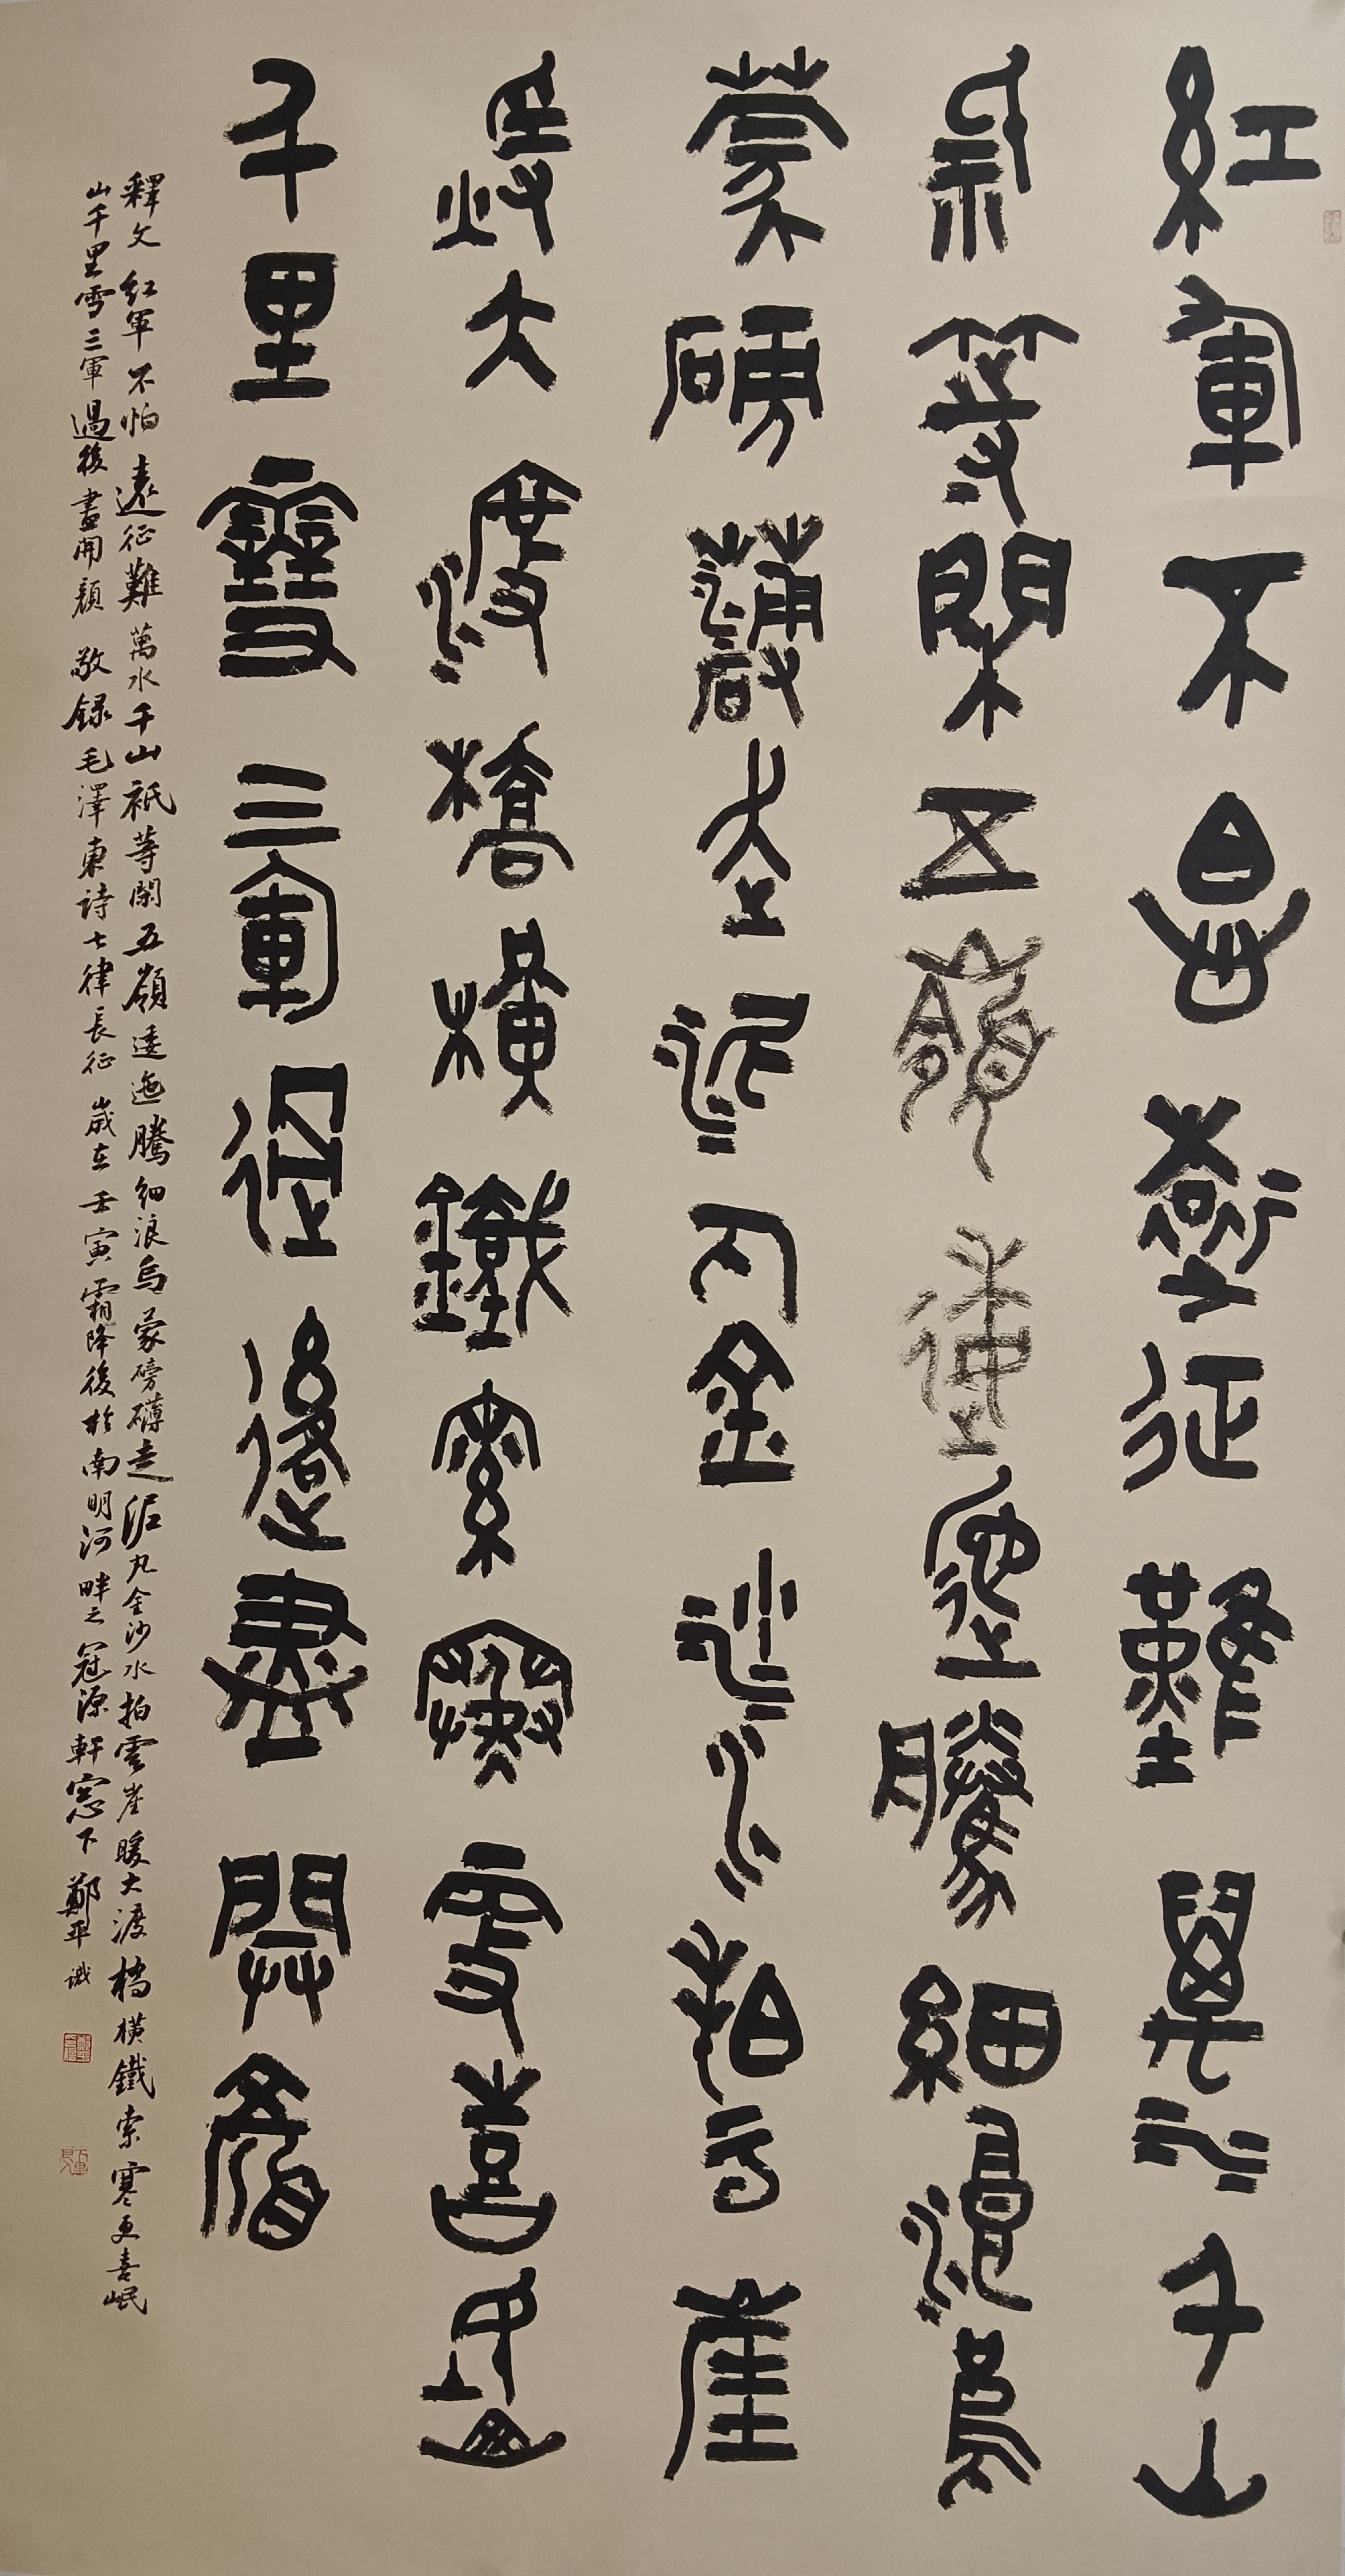 紅軍不怕遠征難萬水千山
祇等閑五嶺逶迤騰細浪烏
蒙磅礴走泥丸金沙水拍雲崖
暖大渡橋橫鐵索寒更喜岷山
千里雪三軍過後盡開顏
釋文 紅軍不怕遠征難萬水千山祇等閑五嶺逶迤騰細浪烏蒙磅礴走泥丸金沙水拍雲崖暖大渡橋橫鐵索寒更喜岷
山千里雪三軍過後盡開顏 敬録毛澤東詩七律長征 歲在壬寅霜降後於南明河畔之冠源軒窓下鄭平識